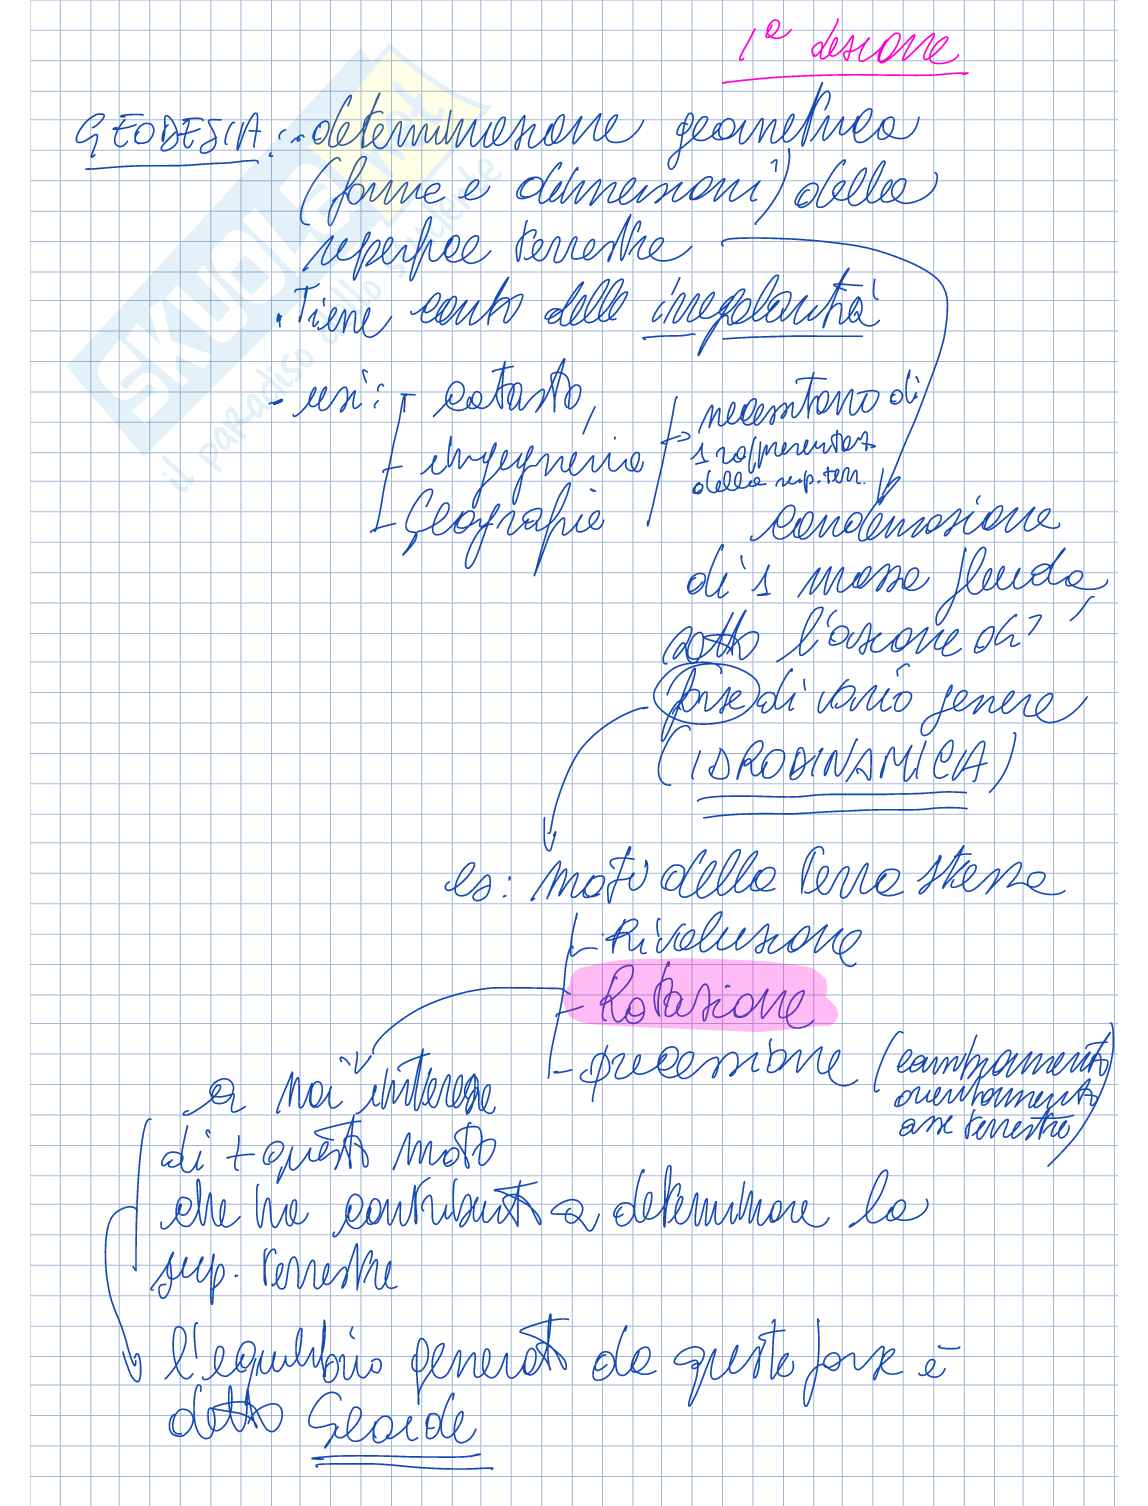 1ª lezione
GEODESIA: - determinazione geometrica
(forme e dimensioni) della
superfice terrestre
. Tiene conto delle irregolarità
- usi: - catasto,
- ingegneria
- Geografia
necessitano di
1 rappresentaz.
della sup. terr.
condensazione
di 1 massa fluida,
sotto l'azione di
forze di vario genere
(IDRODINAMICA)
es: moto della terra stessa
- Rivoluzione
- Rotazione
- precessione (cambiamento
orientamento
asse terrestre)
a noi interessa
di + questo moto
che ha contribuito a determinare la
sup. terrestre
l'equilibrio generato da queste forze è
detto Geoide
SKUOLA.net
il paradiso dello studente